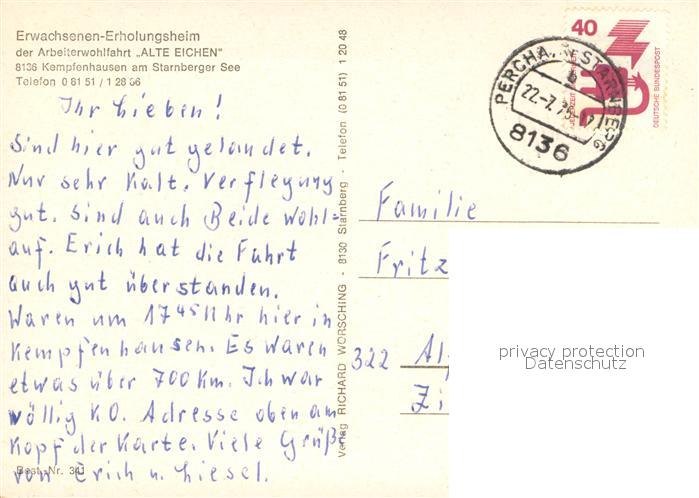 Erwachsenen-Erholungsheim
der Arbeiterwohlfahrt „ALTE EICHEN"
8136 Kempfenhausen am Starnberger See
Telefon 0 81 51 / 1 28 56
Ihr Lieben!
Sind hier gut gelandet.
Nur sehr Kalt. Verflegung
gut. Sind auch Beide wohl=
auf. Erich hat die Fahrt
auch gut überstanden.
Waren um 17 45 Uhr hier in
Kempfenhausen. Es waren
etwas über 700 Km. Ich war
völlig K.O. Adresse oben am
Kopf der Karte. Viele Grüß
von Erich u. Liesel.
Best.-Nr. 341
Verlag RICHARD WÖRSCHING - 8130 Starnberg - Telefon (0 81 51) 1 20 48
40
DEUTSCHE BUNDESPOST
PERCHA, STARNBERG
22.-7.
8136
Familie
Fritz
322 Al
Zi
privacy protection
Datenschutz